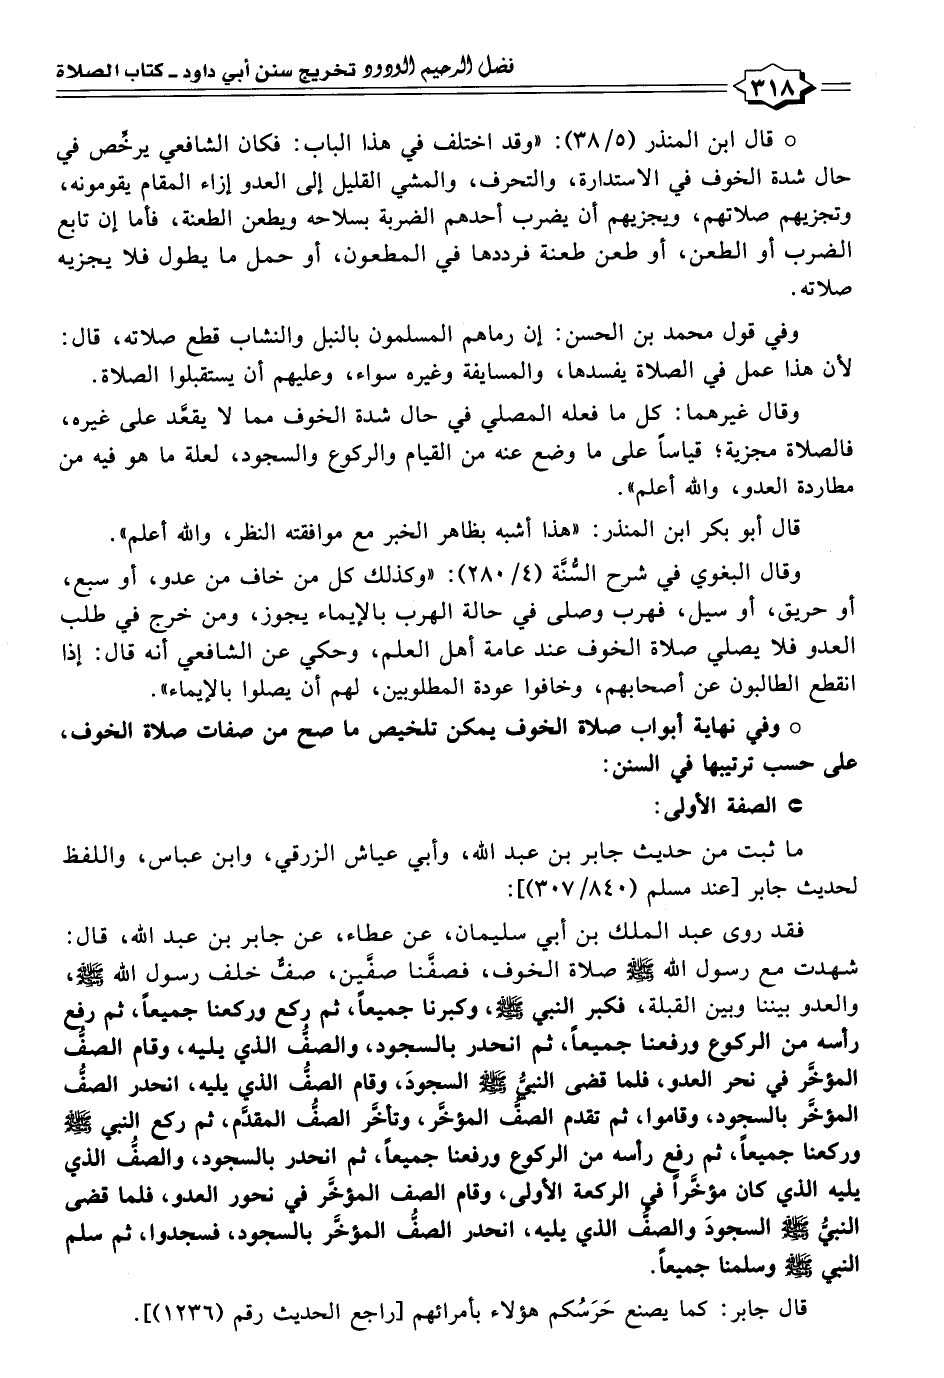 فضل الرحيم الودود تخريج سنن أبي داود ـ كتاب الصلاة
٣١٨
○ قال ابن المنذر (٣٨/٥): «وقد اختلف في هذا الباب: فكان الشافعي يرخِّص في
حال شدة الخوف في الاستدارة، والتحرف، والمشي القليل إلى العدو إزاء المقام يقومونه،
وتجزيهم صلاتهم، ويجزيهم أن يضرب أحدهم الضربة بسلاحه ويطعن الطعنة، فأما إن تابع
الضرب أو الطعن، أو طعن طعنة فرددها في المطعون، أو حمل ما يطول فلا يجزيه
صلاته.
وفي قول محمد بن الحسن: إن رماهم المسلمون بالنبل والنشاب قطع صلاته، قال:
لأن هذا عمل في الصلاة يفسدها، والمسايفة وغيره سواء، وعليهم أن يستقبلوا الصلاة.
وقال غيرهما: كل ما فعله المصلي في حال شدة الخوف مما لا يقعَّد على غيره،
فالصلاة مجزية؛ قياساً على ما وضع عنه من القيام والركوع والسجود، لعلة ما هو فيه من
مطاردة العدو، والله أعلم».
قال أبو بكر ابن المنذر: «هذا أشبه بظاهر الخبر مع موافقته النظر، والله أعلم».
وقال البغوي في شرح السُّنَّة (٢٨٠/٤): «وكذلك كل من خاف من عدو، أو سبع،
أو حريق، أو سيل، فهرب وصلى في حالة الهرب بالإيماء يجوز، ومن خرج في طلب
العدو فلا يصلي صلاة الخوف عند عامة أهل العلم، وحكي عن الشافعي أنه قال: إذا
انقطع الطالبون عن أصحابهم، وخافوا عودة المطلوبين، لهم أن يصلوا بالإيماء».
○ وفي نهاية أبواب صلاة الخوف يمكن تلخيص ما صح من صفات صلاة الخوف،
على حسب ترتيبها في السنن:
⊂ الصفة الأولى:
ما ثبت من حديث جابر بن عبد الله، وأبي عياش الزرقي، وابن عباس، واللفظ
لحديث جابر [عند مسلم (٣٠٧/٨٤٠)]:
فقد روى عبد الملك بن أبي سليمان، عن عطاء، عن جابر بن عبد الله، قال:
شهدت مع رسول الله ﷺ صلاة الخوف، فصفَّنا صفَّين، صفٌّ خلف رسول الله ﷺ،
والعدو بيننا وبين القبلة، فكبر النبي ﷺ، وكبرنا جميعاً، ثم ركع وركعنا جميعاً، ثم رفع
رأسه من الركوع ورفعنا جميعاً، ثم انحدر بالسجود، والصفُّ الذي يليه، وقام الصفُّ
المؤخَّر في نحر العدو، فلما قضى النبيُّ ﷺ السجودَ، وقام الصفُّ الذي يليه، انحدر الصفُّ
المؤخَّر بالسجود، وقاموا، ثم تقدم الصفُّ المؤخَّر، وتأخَّر الصفُّ المقدَّم، ثم ركع النبي ﷺ
وركعنا جميعاً، ثم رفع رأسه من الركوع ورفعنا جميعاً، ثم انحدر بالسجود، والصفُّ الذي
يليه الذي كان مؤخَّراً في الركعة الأولى، وقام الصف المؤخَّر في نحور العدو، فلما قضى
النبيُّ ﷺ السجودَ والصفُّ الذي يليه، انحدر الصفُّ المؤخَّر بالسجود، فسجدوا، ثم سلم
النبي ﷺ وسلمنا جميعاً.
قال جابر: كما يصنع حَرَسُكم هؤلاء بأمرائهم [راجع الحديث رقم (١٢٣٦)].